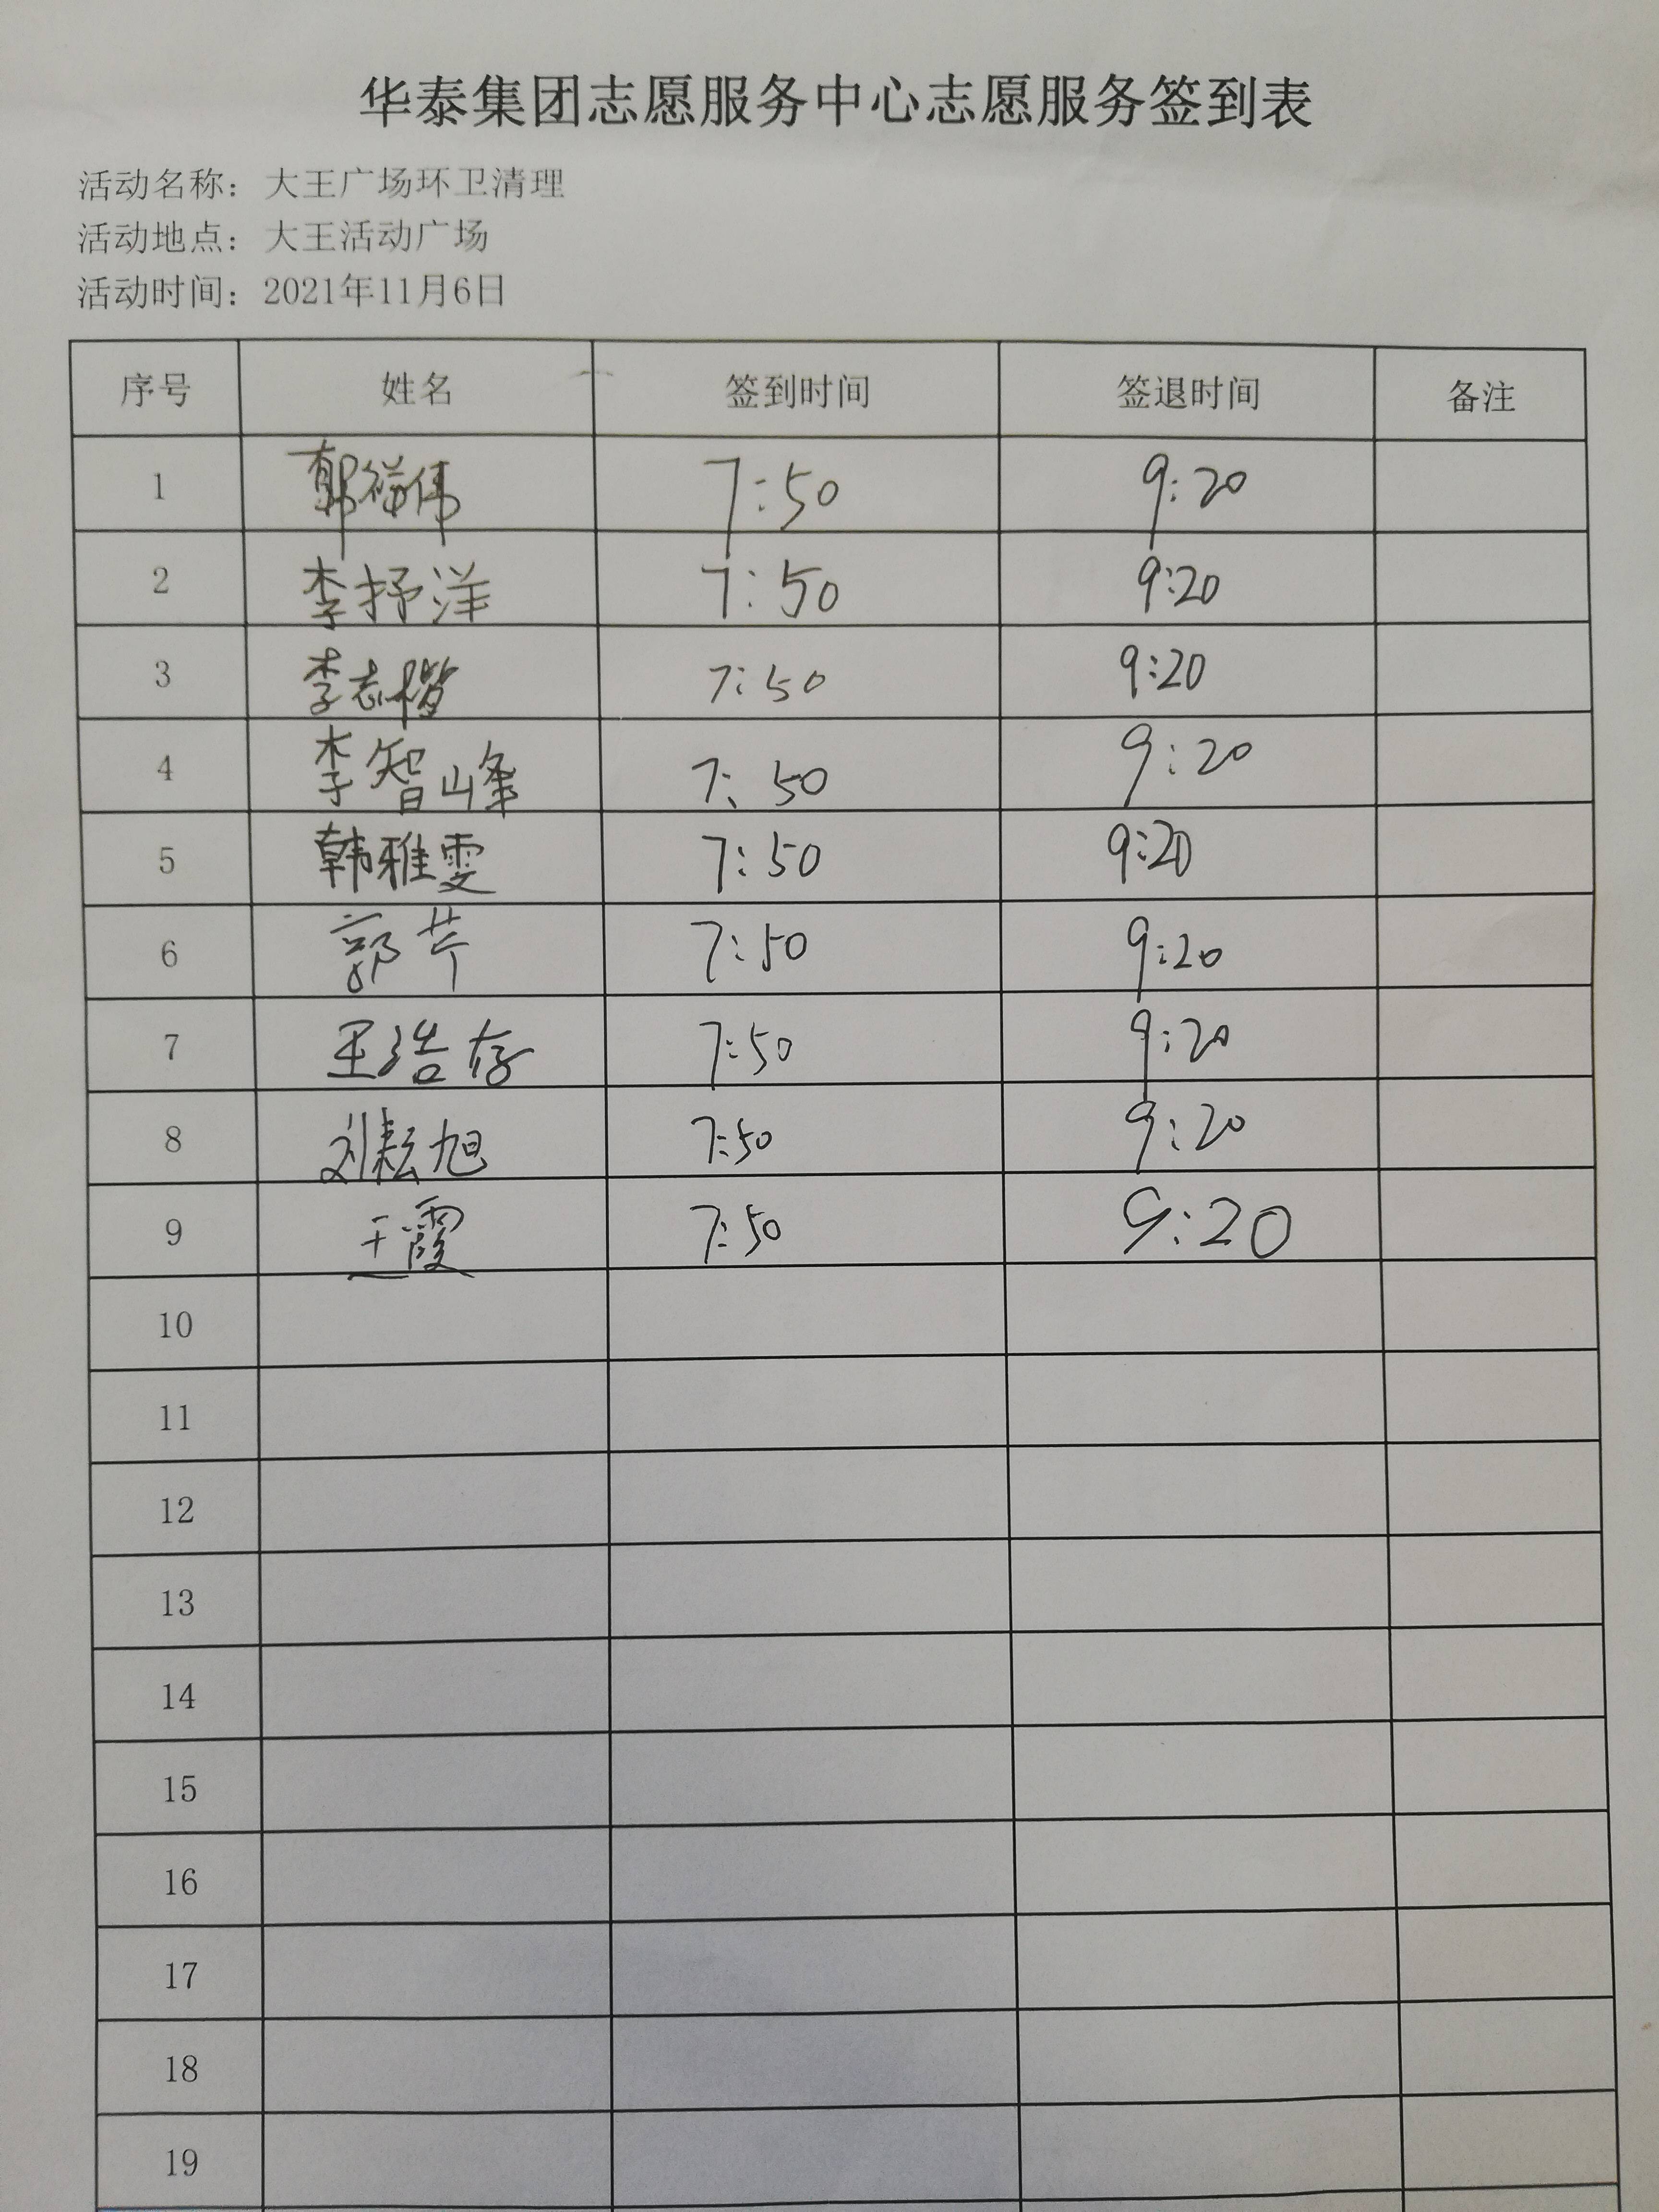 华泰集团志愿服务中心志愿服务签到表
活动名称：大王广场环卫清理
活动地点：大王活动广场
活动时间：2021年11月6日
序号 姓名 签到时间 签退时间 备注
1 郭祥伟 7:50 9:20
2 李抒洋 7:50 9:20
3 李志楷 7:50 9:20
4 李智峰 7:50 9:20
5 韩雅雯 7:50 9:20
6 郭芹 7:50 9:20
7 王浩存 7:50 9:20
8 刘耘旭 7:50 9:20
9 王霞 7:50 9:20
10
11
12
13
14
15
16
17
18
19